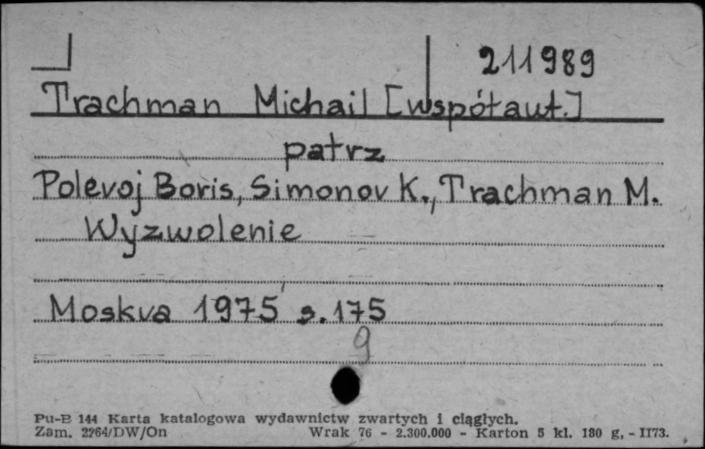 211989
Trachman Michail [współaut.]
patrz
Polevoj Boris, Simonov K., Trachman M.
Wyzwolenie
Moskva 1975 s. 175
9
Pu-B 144 Karta katalogowa wydawnictw zwartych i ciągłych.
Zam. 2264/DW/On Wrak 76 - 2.300.000 - Karton 5 kl. 180 g, - II73.